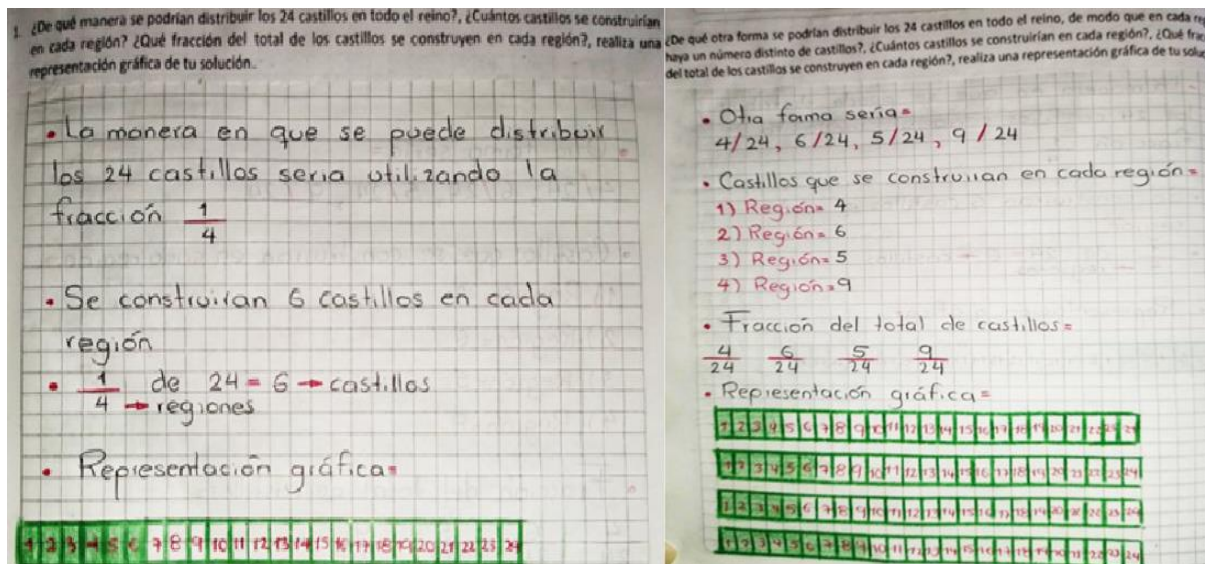 1. ¿De qué manera se podrían distribuir los 24 castillos en todo el reino?, ¿Cuántos castillos se construirían
en cada región? ¿Qué fracción del total de los castillos se construyen en cada región?, realiza una
representación gráfica de tu solución..
• La manera en que se puede distribuir
los 24 castillos seria utilizando la
fracción 1/4
• Se construirian 6 castillos en cada
región
• 1/4 de 24 = 6 → castillos
→ regiones
• Representación gráfica=
1 2 3 4 5 6 7 8 9 10 11 12 13 14 15 16 17 18 19 20 21 22 23 24
¿De qué otra forma se podrían distribuir los 24 castillos en todo el reino, de modo que en cada
haya un número distinto de castillos?, ¿Cuántos castillos se construirían en cada región?, ¿Qué
del total de los castillos se construyen en cada región?, realiza una representación gráfica de tu
• Otra forma sería=
4/24, 6/24, 5/24, 9/24
• Castillos que se construirian en cada región=
1) Región= 4
2) Región= 6
3) Región= 5
4) Región= 9
• Fracción del total de castillos=
4/24 6/24 5/24 9/24
• Representación gráfica=
1 2 3 4 5 6 7 8 9 10 11 12 13 14 15 16 17 18 19 20 21 22 23 24
1 2 3 4 5 6 7 8 9 10 11 12 13 14 15 16 17 18 19 20 21 22 23 24
1 2 3 4 5 6 7 8 9 10 11 12 13 14 15 16 17 18 19 20 21 22 23 24
1 2 3 4 5 6 7 8 9 10 11 12 13 14 15 16 17 18 19 20 21 22 23 24